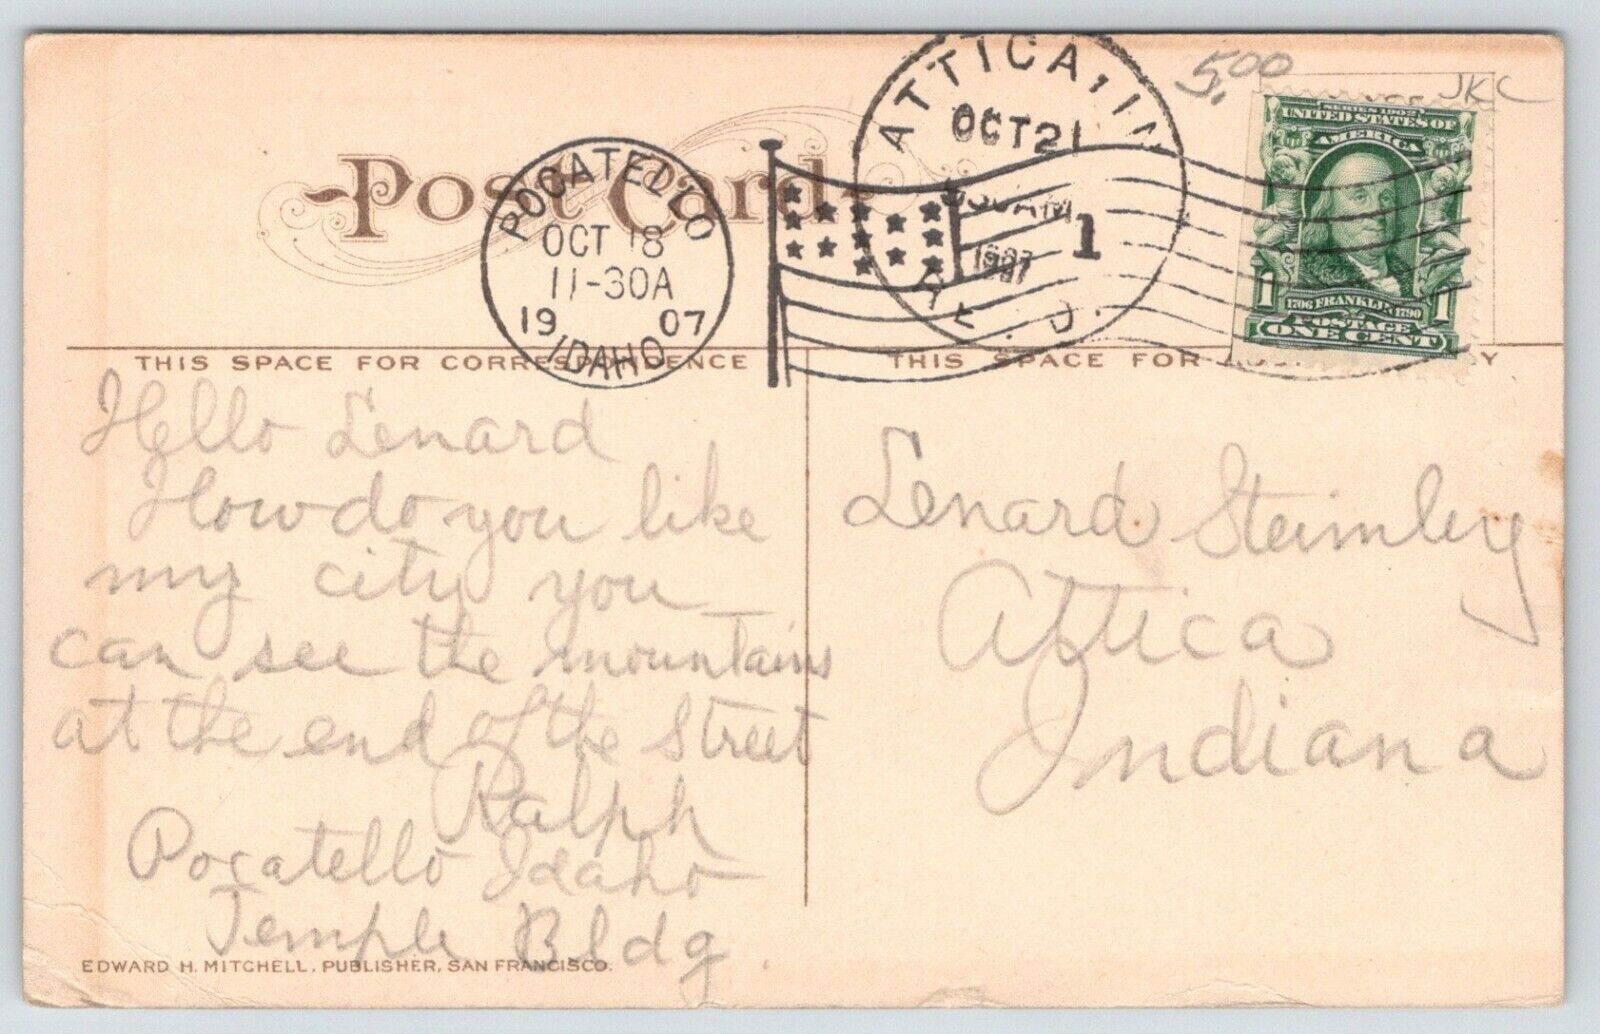 Post Card
POCATELLO
OCT 18
11-30A
19 07
IDAHO
ATTICA, IN
OCT 21
AM
1
1907
5.00
JKC
SERIES 1902
UNITED STATES OF
AMERICA
1706 FRANKLIN 1790
1 1
POSTAGE
ONE CENT
THIS SPACE FOR CORRESPONDENCE
THIS SPACE FOR
Hello Lenard
How do you like
my city you
can see the mountains
at the end of the street
Ralph
Pocatello Idaho
Temple Bldg.
Lenard Steimley
Attica
Indiana
EDWARD H. MITCHELL, PUBLISHER, SAN FRANCISCO.